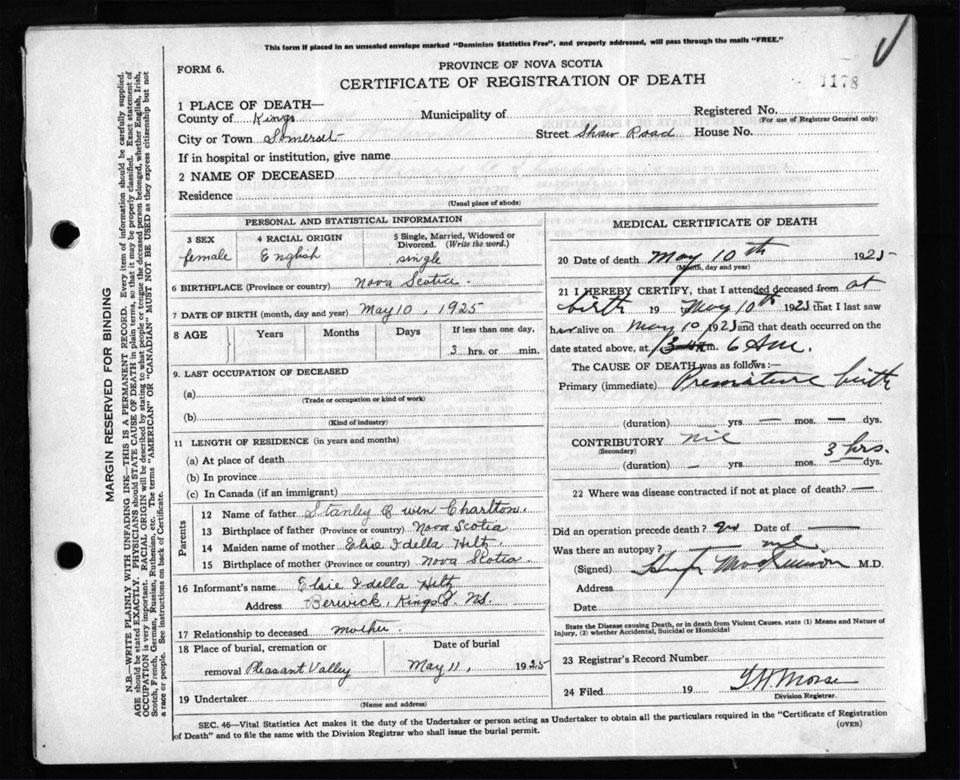 This form if placed in an unsealed envelope marked "Dominion Statistics Free", and properly addressed, will pass through the mails "FREE."
FORM 6.
PROVINCE OF NOVA SCOTIA
CERTIFICATE OF REGISTRATION OF DEATH
1178
1 PLACE OF DEATH—
County of Kings Municipality of Registered No.
(For use of Registrar General only)
City or Town Somerset Street Shaw Road House No.
If in hospital or institution, give name
2 NAME OF DECEASED
Residence
(Usual place of abode)
PERSONAL AND STATISTICAL INFORMATION
3 SEX 4 RACIAL ORIGIN 5 Single, Married, Widowed or Divorced. (Write the word.)
female English single
6 BIRTHPLACE (Province or country) Nova Scotia
7 DATE OF BIRTH (month, day and year) May 10, 1925
8 AGE Years Months Days If less than one day,
3 hrs. or min.
9. LAST OCCUPATION OF DECEASED
(a)
(Trade or occupation or kind of work)
(b)
(Kind of industry)
11 LENGTH OF RESIDENCE (in years and months)
(a) At place of death
(b) In province
(c) In Canada (if an immigrant)
Parents
12 Name of father Stanley Charlton
13 Birthplace of father (Province or country) Nova Scotia
14 Maiden name of mother Elsie Idella Hiltz
15 Birthplace of mother (Province or country) Nova Scotia
16 Informant's name Elsie Idella Hiltz
Address Berwick, Kings NS.
17 Relationship to deceased mother
18 Place of burial, cremation or removal Pleasant Valley
Date of burial
May 11, 1925
19 Undertaker
(Name and address)
MEDICAL CERTIFICATE OF DEATH
20 Date of death May 10th 1925
(Month, day and year)
21 I HEREBY CERTIFY, that I attended deceased from at
birth 19 to May 10th 1925 that I last saw
her alive on May 10 1925 and that death occurred on
date stated above, at 6 Am.
The CAUSE OF DEATH was as follows:—
Primary (immediate) Premature birth
(duration) — yrs — mos. — dys.
CONTRIBUTORY nil
(Secondary)
3 hrs.
(duration) — yrs. mos. dys.
22 Where was disease contracted if not at place of death? —
Did an operation precede death? no Date of —
Was there an autopsy?
(Signed) M.D.
Address
Date
State the Disease causing Death, or in death from Violent Causes, state (1) Means and Nature of Injury, (2) whether Accidental, Suicidal or Homicidal
23 Registrar's Record Number
24 Filed 19 Morse
Division Registrar.
SEC. 46—Vital Statistics Act makes it the duty of the Undertaker or person acting as Undertaker to obtain all the particulars required in the "Certificate of Registration
of Death" and to file the same with the Division Registrar who shall issue the burial permit.
(OVER)
MARGIN RESERVED FOR BINDING
N.B.—WRITE PLAINLY WITH UNFADING INK—THIS IS A PERMANENT RECORD. Every item of information should be carefully supplied.
AGE should be stated EXACTLY. PHYSICIANS should STATE CAUSE OF DEATH in plain terms, so that it may be properly classified. Exact statement of
OCCUPATION is very important. RACIAL ORIGIN will be described by stating to what people or tongue the deceased person belonged, whether English, Irish,
Scotch, French, German, Russian, Ruthenian, etc. The terms "AMERICAN" OR "CANADIAN" MUST NOT BE USED as they express citizenship but not
a race or people. See instructions on back of Certificate.